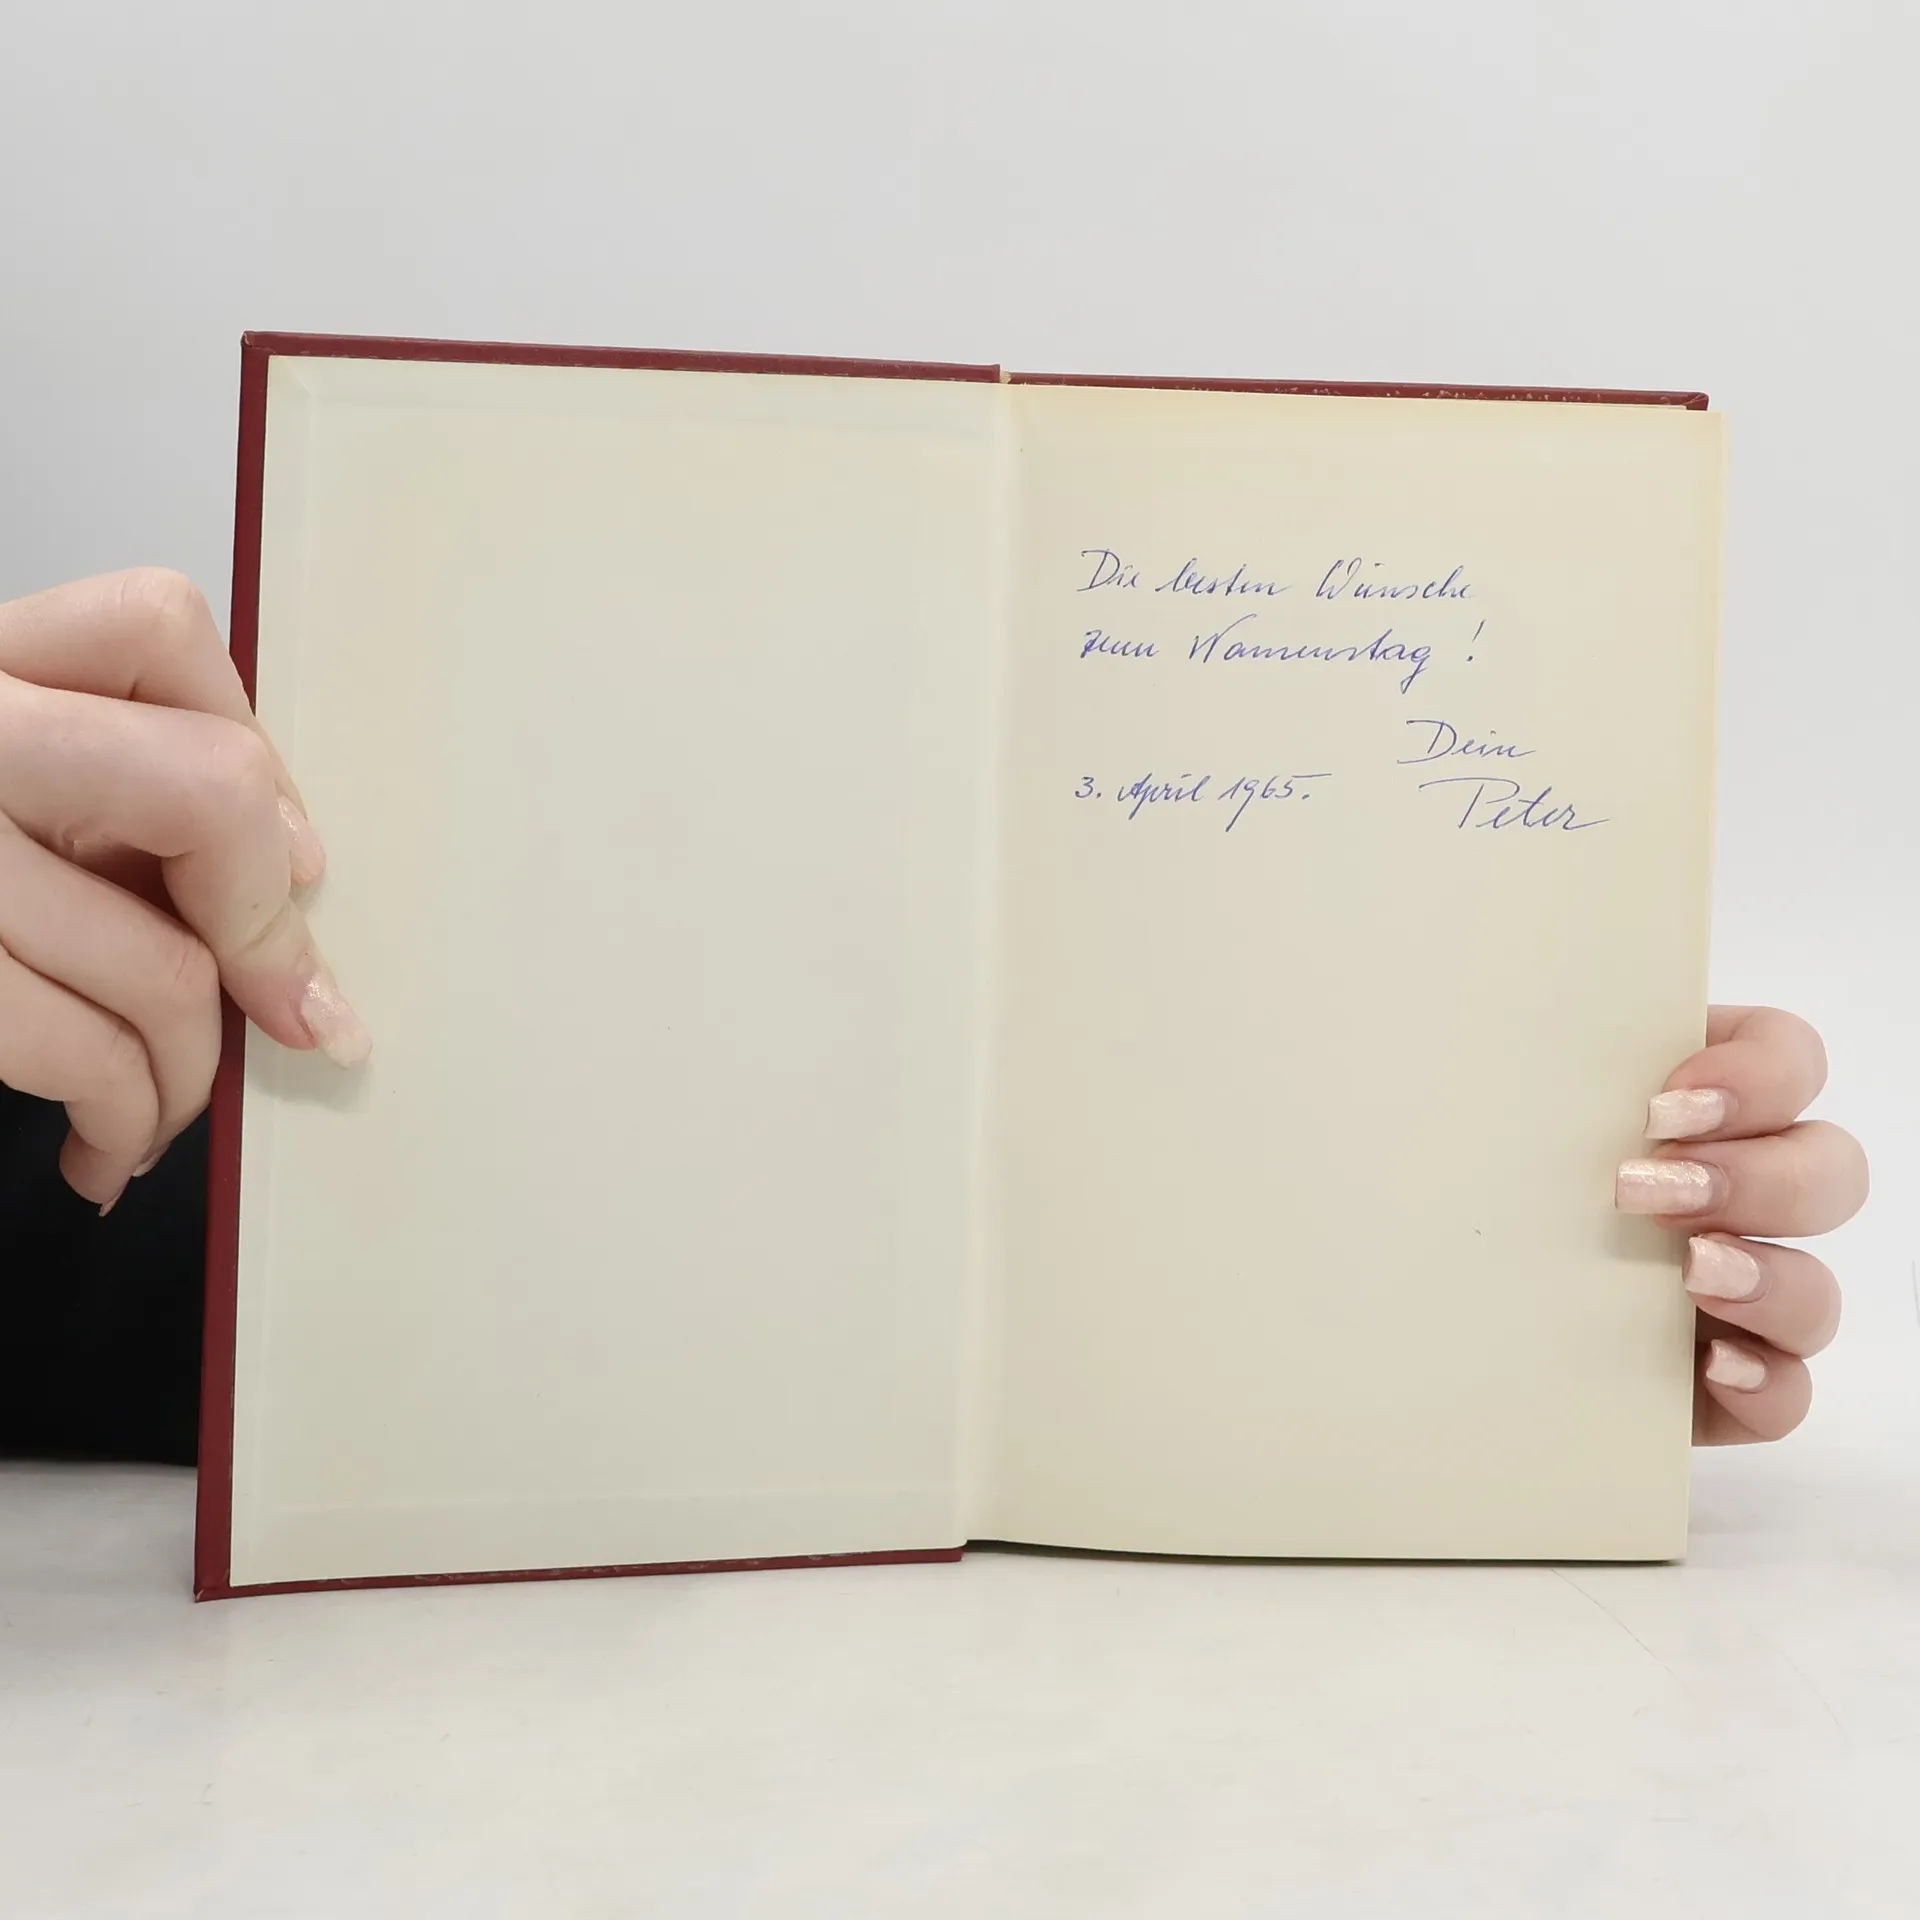 Die besten Wünsche
zum Namenstag!
Dein
3. April 1965. Peter